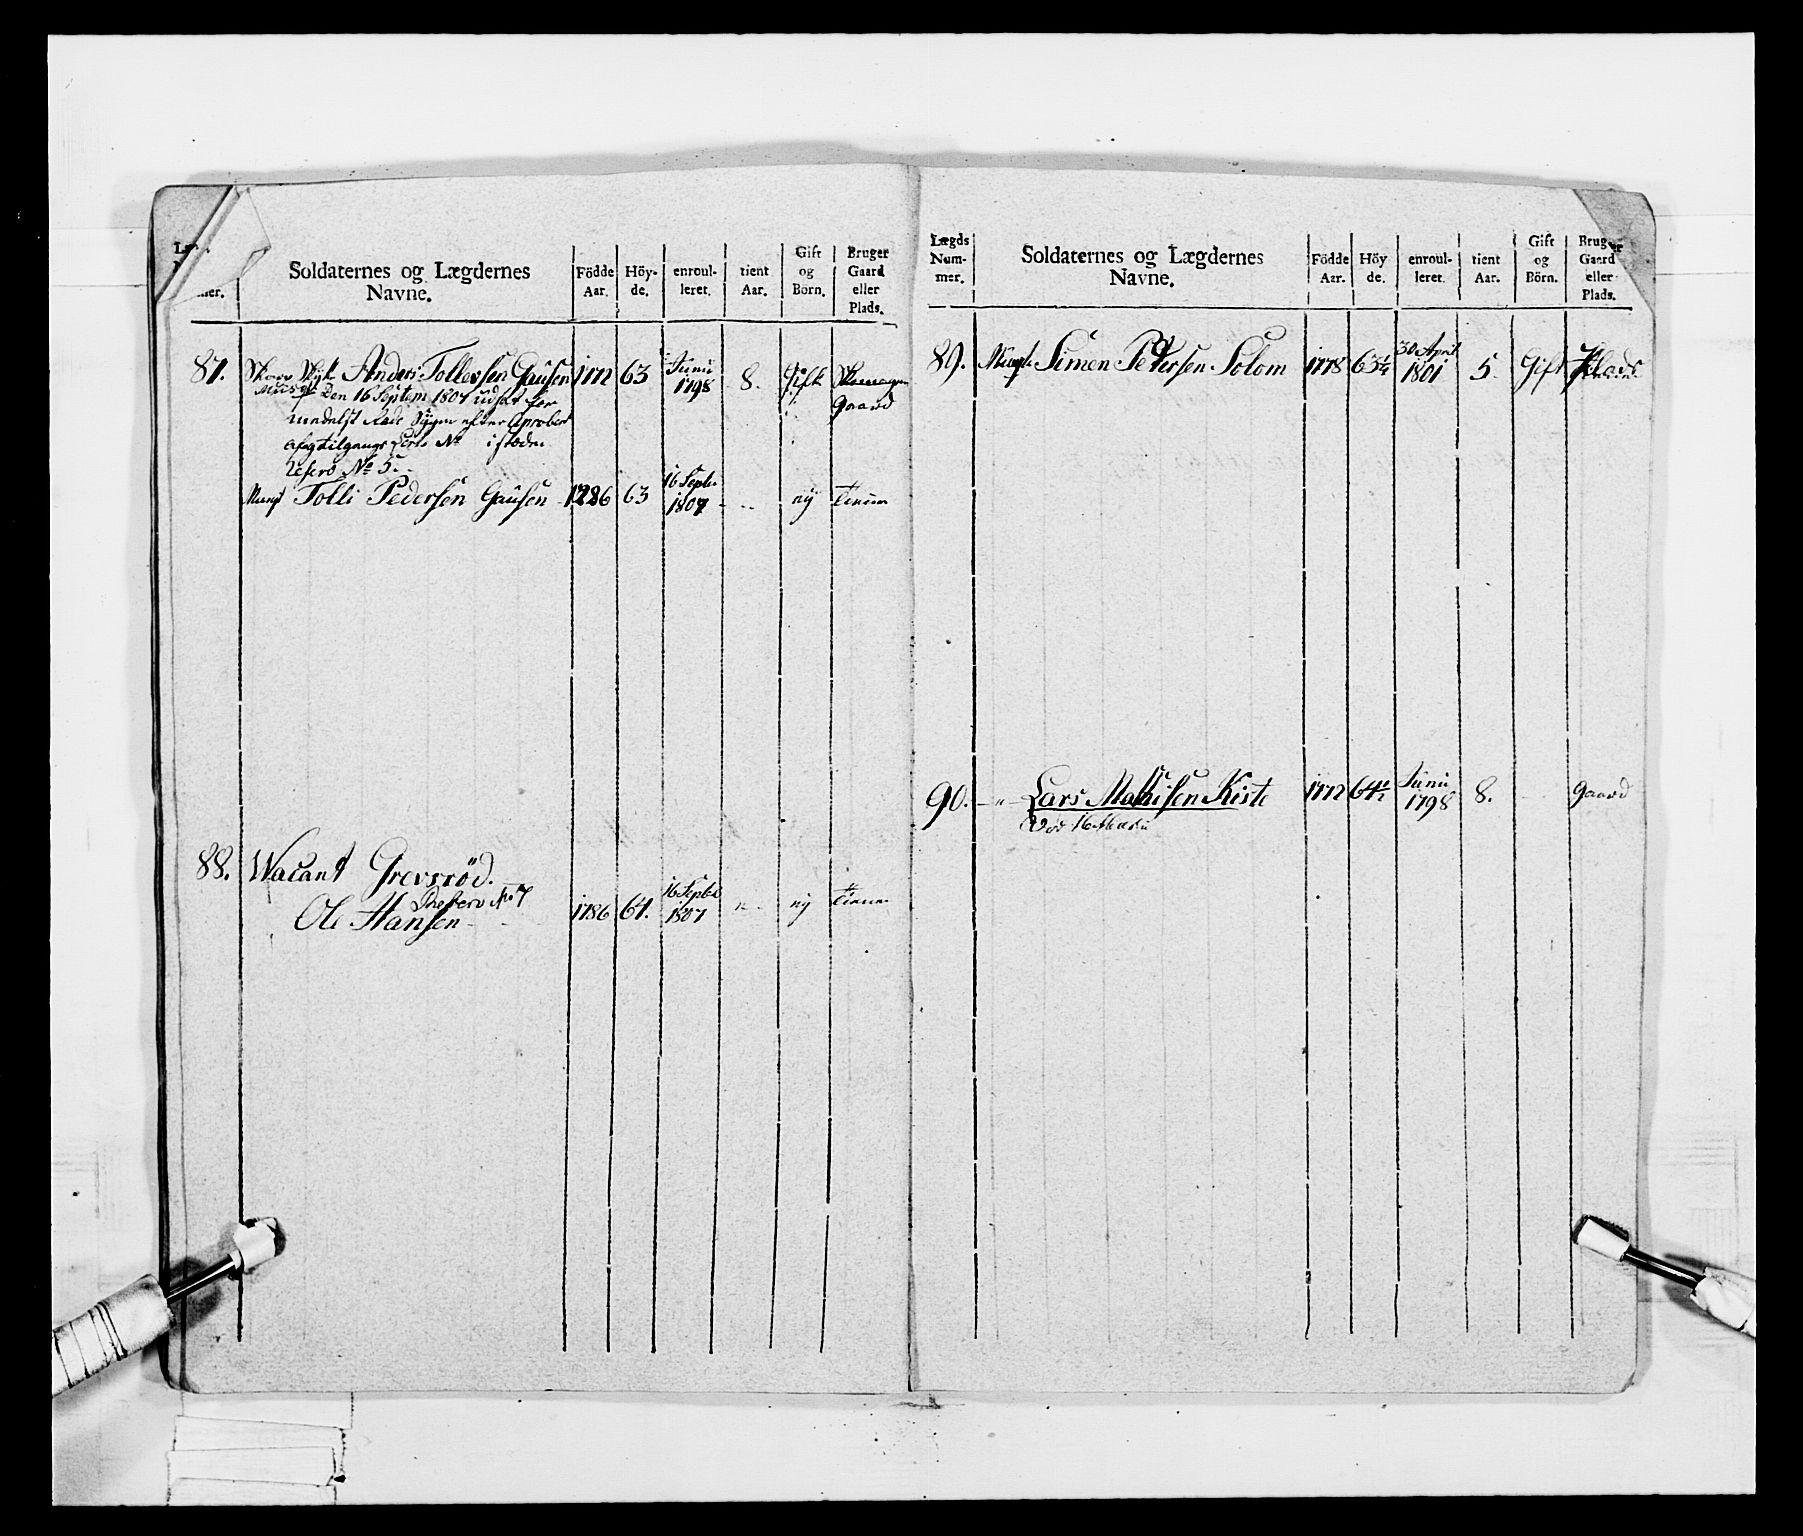 mer.
Soldaternes og Lægdernes
Navne.
Födde
Aar.
Höy-
de.
enroul-
leret.
tient
Aar.
Gift
og
Börn.
Bruger
Gaard
eller
Plads.
87. Anders Tollefsen Gausen 1772 63 Junii 1798 8. Gift
Den 16 Septem 1807 udsat for
Gaard
No
No 5.
Musqt Tolli Pedersen Gausen 1786 63 16 Septr 1807 - ny
88. Wacant Grevsröd.
No 7
Ole Hansen 1786 64. 16 Septbr 1807 " ny
Lægds
Num-
mer.
Soldaternes og Lægdernes
Navne.
Födde
Aar.
Höy
de.
enroul-
leret.
tient
Aar.
Gift
og
Börn.
Bruger
Gaard
eller
Plads.
89. Simen Pedersen Solom 1778 63¼ 30 April 1801 5 Gift Plads
90. — " — Lars Mathisen Kiste 1772 64½ Junii 1798 8. Gaard